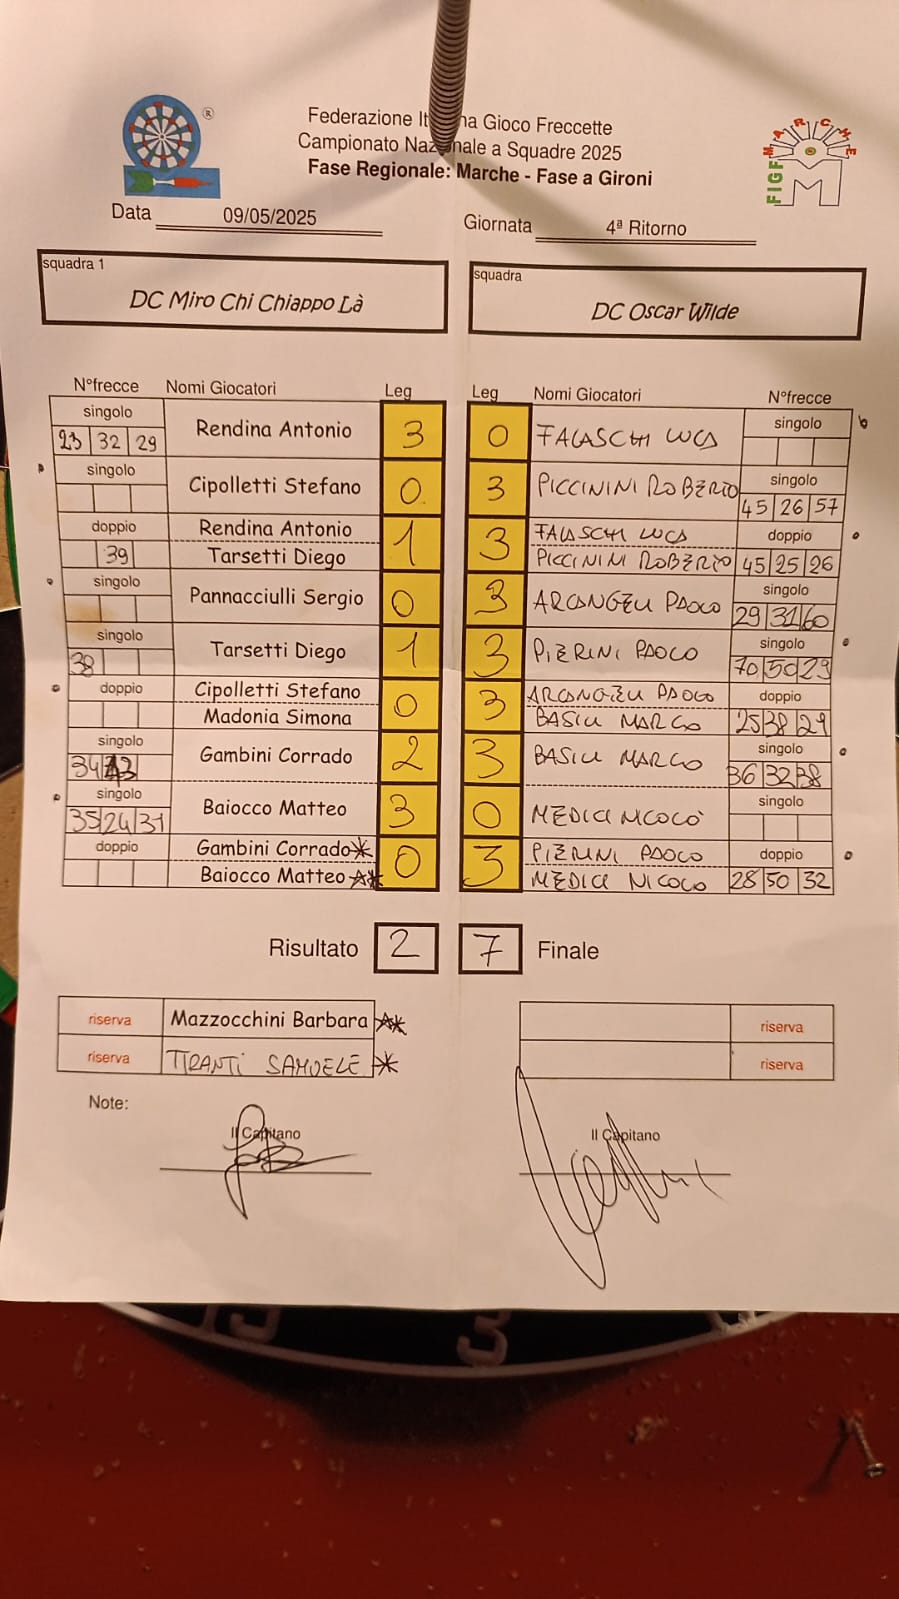 Federazione It na Gioco Freccette
Campionato Naz nale a Squadre 2025
Fase Regionale: Marche - Fase a Gironi
®
MARCHE
FIGF
M
Data 09/05/2025 Giornata 4ª Ritorno
squadra 1
DC Miro Chi Chiappo Là
squadra
DC Oscar Wilde
N°frecce Nomi Giocatori Leg Leg Nomi Giocatori N°frecce
singolo Rendina Antonio 3 0 FALASCHI LUCA singolo
23 32 29
singolo Cipolletti Stefano 0 3 PICCININI ROBERTO singolo
45 26 57
doppio Rendina Antonio 1 3 FALASCHI LUCA doppio
39 Tarsetti Diego PICCININI ROBERTO 45 25 26
singolo Pannacciulli Sergio 0 3 ARCANGELI PAOLO singolo
29 31 60
singolo Tarsetti Diego 1 3 PIERINI PAOLO singolo
38 70 50 29
doppio Cipolletti Stefano 0 3 ARCANGELI PAOLO doppio
Madonia Simona BASILI MARCO 25 38 29
singolo Gambini Corrado 2 3 BASILI MARCO singolo
34 36 32 38
singolo Baiocco Matteo 3 0 MEDICI NICOLÒ singolo
35 24 31
doppio Gambini Corrado* 0 3 PIERINI PAOLO doppio
Baiocco Matteo** MEDICI NICOLO 28 50 32
Risultato 2 7 Finale
riserva Mazzocchini Barbara ** riserva
riserva TIRANTI SAMUELE * riserva
Note:
Il Capitano Il Capitano